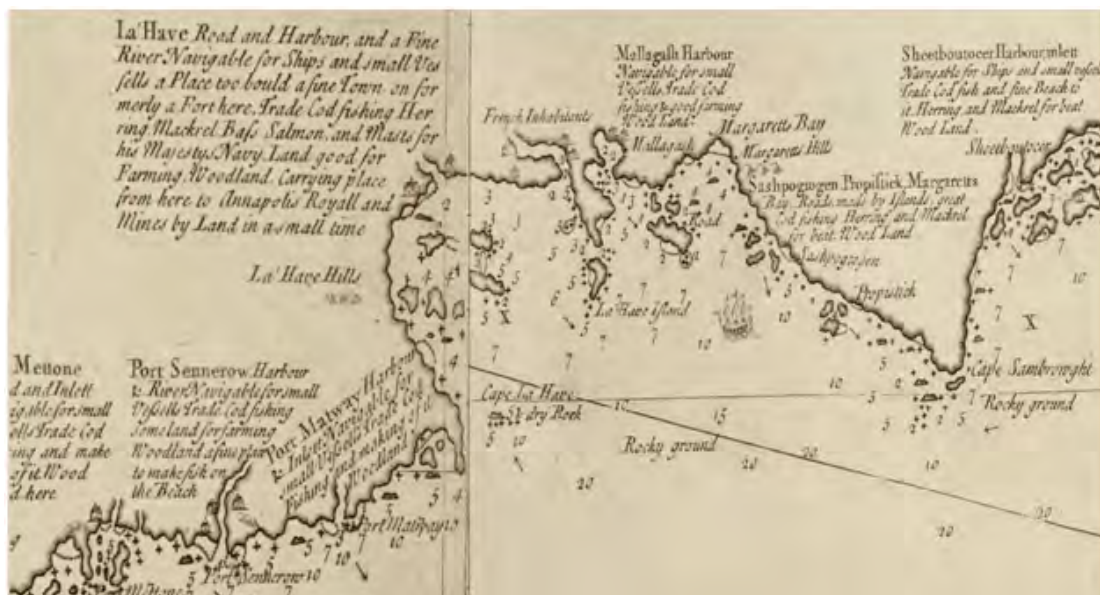 La'Have Road and Harbour, and a Fine
River Navigable for Ships and small Ves
sells a Place too bould a fine Town on for
merly a Fort here, Trade Cod fishing Her
ring, Mackrel, Bass Salmon, and Masts for
his Majestys Navy. Land good for
Farming, Woodland, Carrying place
from here to Annapolis Royall and
Mines by Land in a small time
La' Have Hills
French Inhabitants
Mallagash Harbour
Navigable for small
Vessells, Trade Cod
fishing & good farming
Wood Land.
Mallagash
Margaretts Bay
Margaretts Hills
Sheeboutocer Harbour, inlett
Navigable for Ships and small vessel
Trade Cod fish and fine Beach to
it, Herring, and Mackrel for beat
Wood Land.
Sheeboutocer
Sashpogtogen, Propistick, Margaretts
Bay, Roads, made by Islands, great
Cod fishing, Herring and Mackrel
for beat. Wood Land
Sashpogogen
Road
La' Have Island
Propistick
Cape Sambrowght
Rocky ground
Cape La Have
& dry Rock
Rocky ground
Meuone
d and Inlett
igable for small
ells Trade Cod
ing and make
of it Wood
d here
Port Sennerow, Harbour
& River Navigable for small
Vessells Trade Cod fishing
Some land for farming
Woodland a fine place
to make fish on
the Beach
Port Matway Harbour
& Inlett Navigable for
small Vessells Trade Cod
Fishing and making of it
Woodland
Port Matway
Port Sennerow